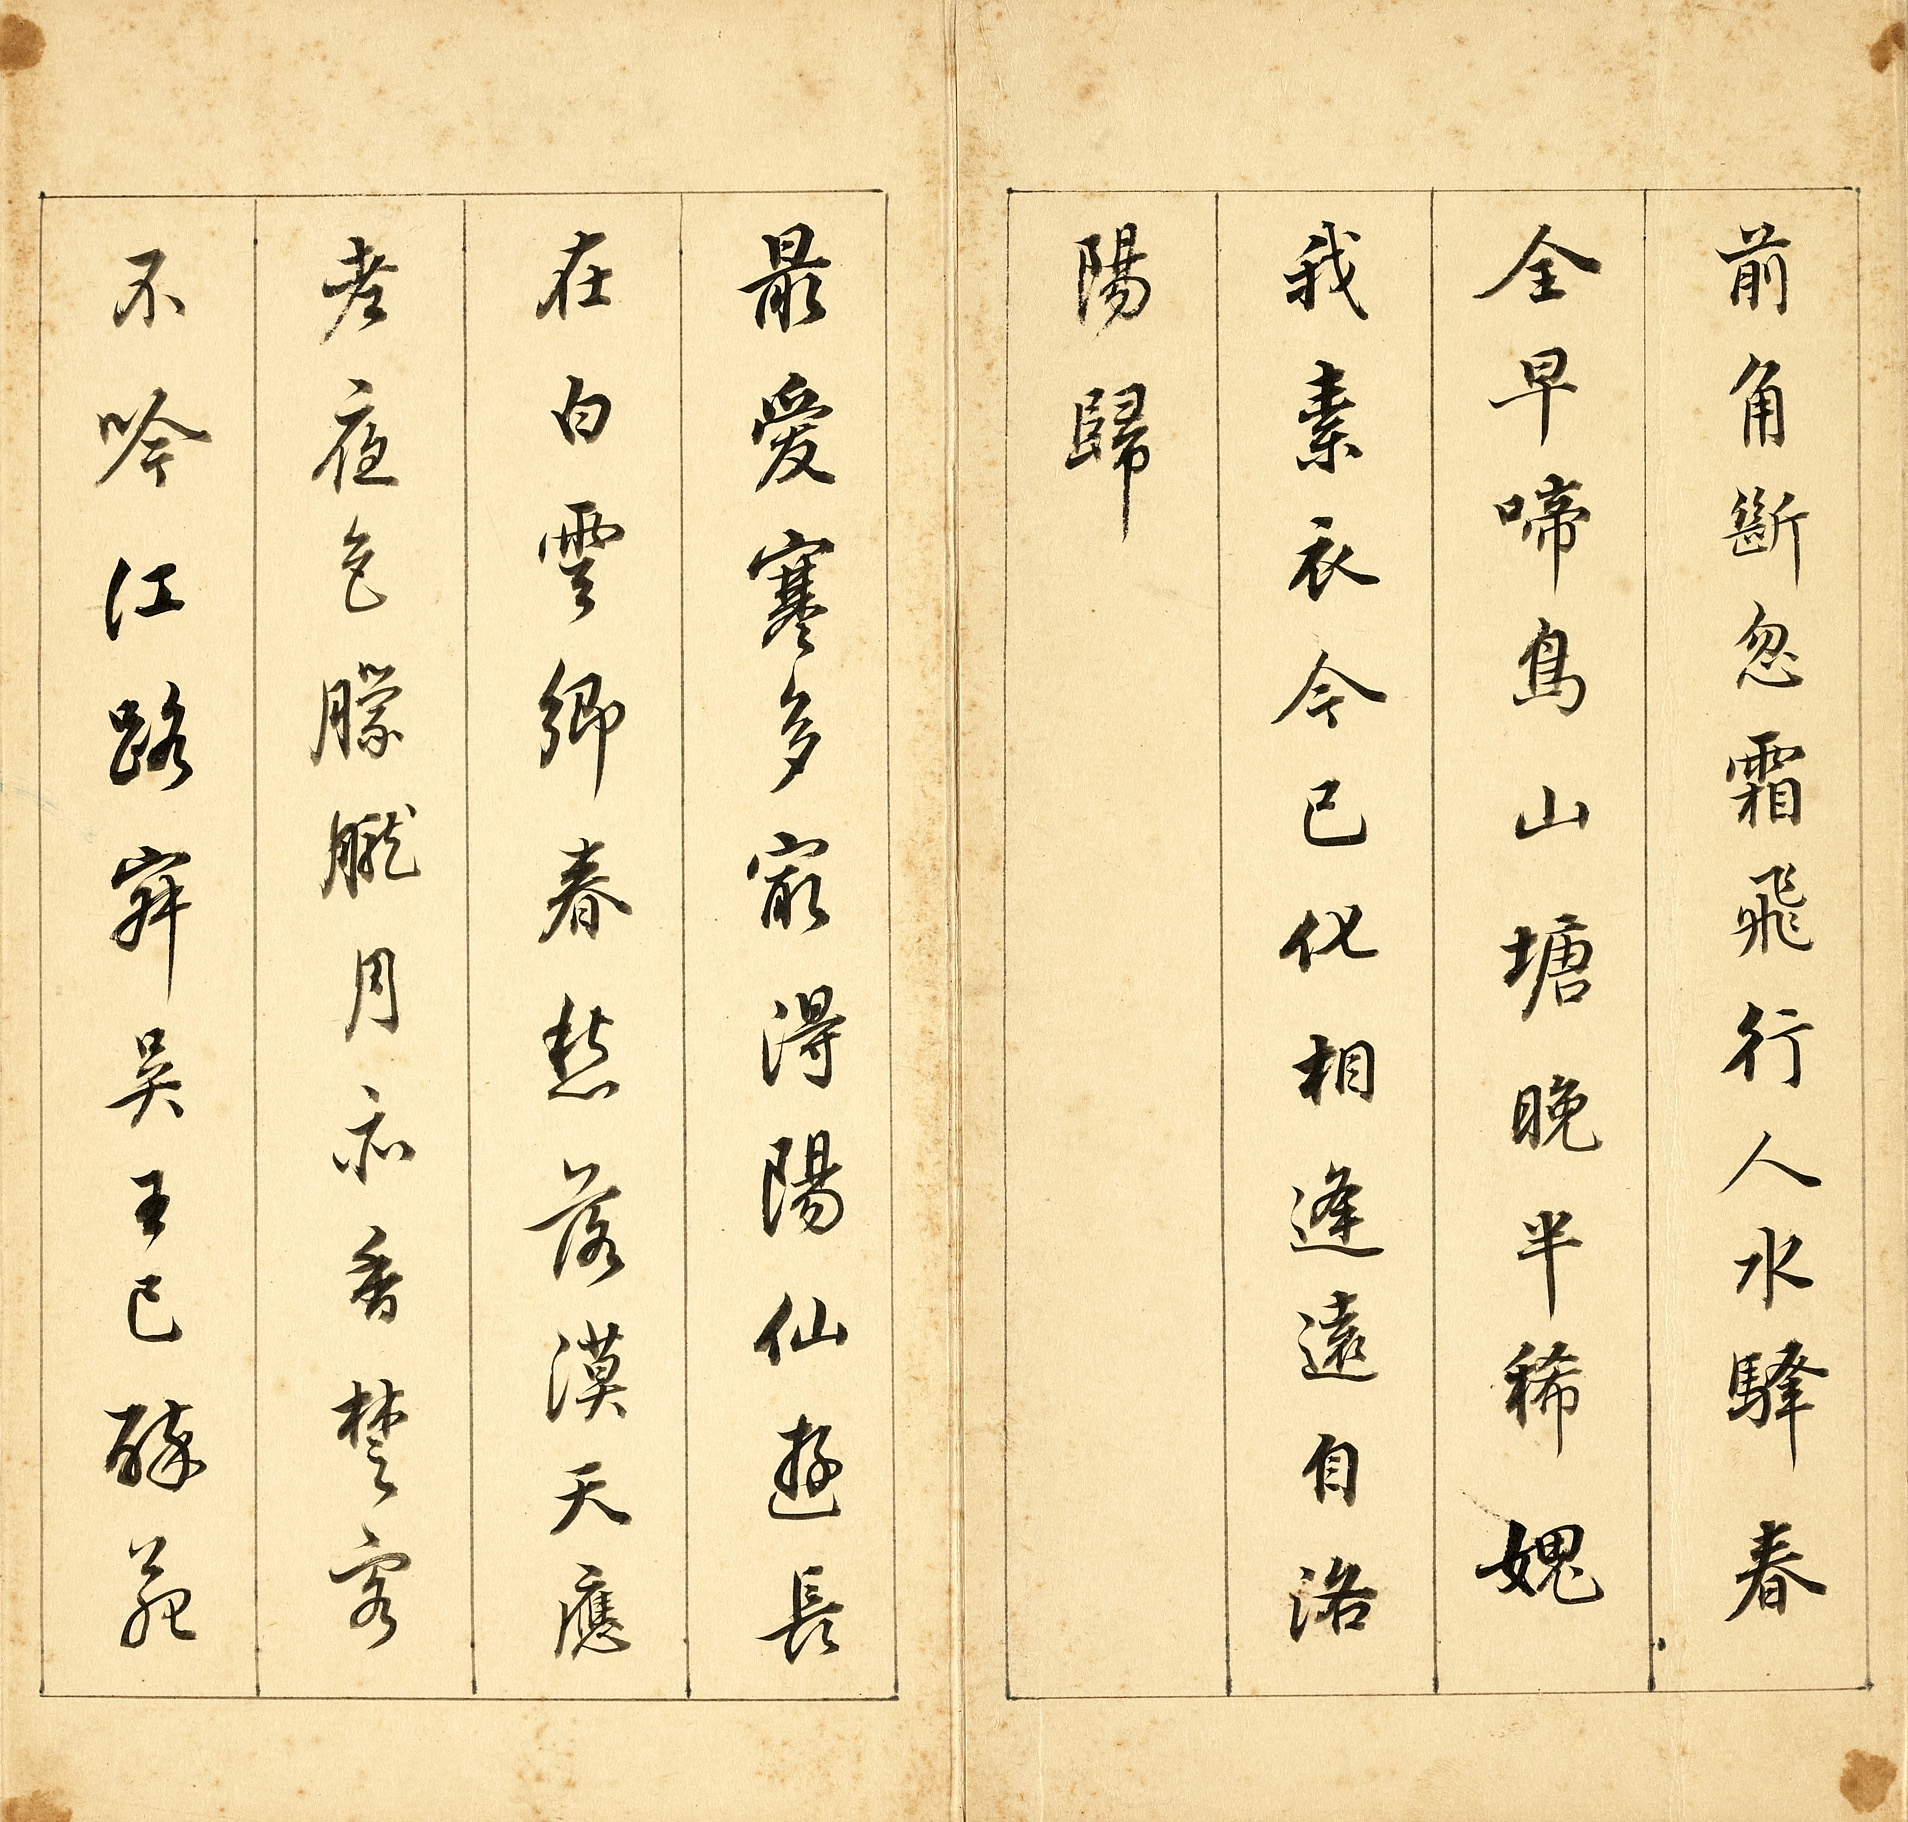 前角斷忽霜飛行人水驛春
全早啼鳥山塘晚半稀媿
我素衣今已化相逢遠自洛
陽歸
最愛寒多㝡得陽仙遊長
在白雲鄉春愁落漠天應
老夜色朦朧月亦香楚客
不吟江路寂吳王已醉苑